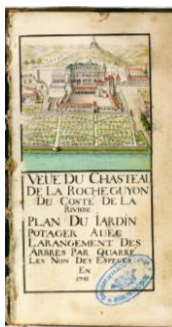 VEUE DU CHASTEAU
DE LA ROCHEGUYON
DU COSTE DE LA
RIVIERE
PLAN DU IARDIN
POTAGER AUEC
LARANGEMENT DES
ARBRES PAR QUARRE
LES NON DES ESPECES
EN
1741